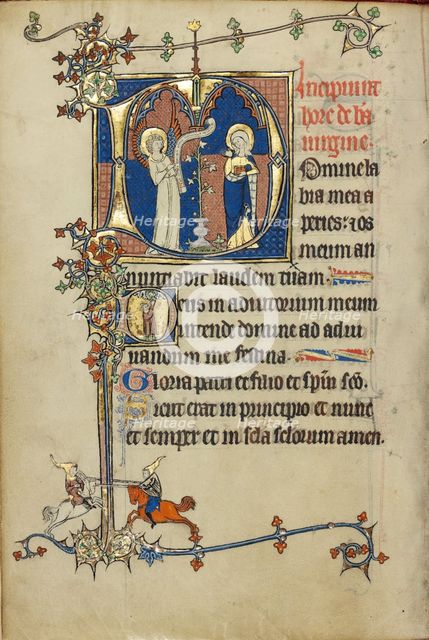 Incipiunt
hore de bā
uirgine.
Domine la
bia mea a
peries: ⁊ os
meum an
nuntiabit laudem tuam.
Deus in adiutorium meum
intende domine ad adiu
uandum me festina.
Gloria patri et filio et spūi sc̄o.
Sicut erat in principio et nunc
et semper et in sc̄la sc̄lorum amen.
Heritage
Heritage
Heritage
Heritage
Heritage
Heritage